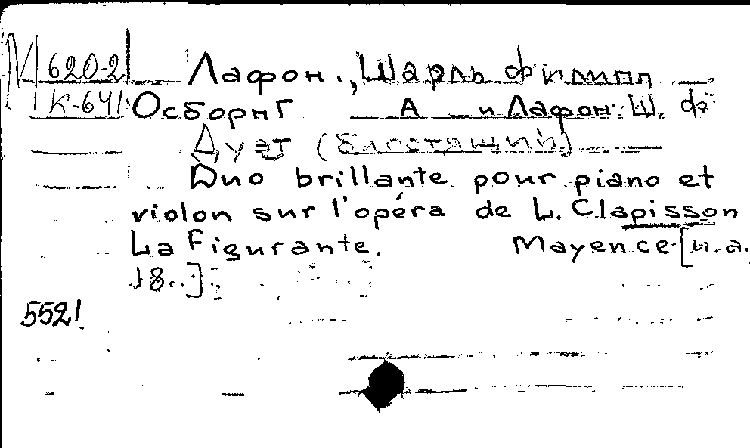 М 620-2 Лафон, Шарль Филипп
К-641 Осборн Г А и Лафон Ш. Ф
Дуэт (блестящий)
Duo brillante pour piano et
violon sur l'opéra de L. Clapisson
La Figurante. Mayence [и.а.
18..].
5521